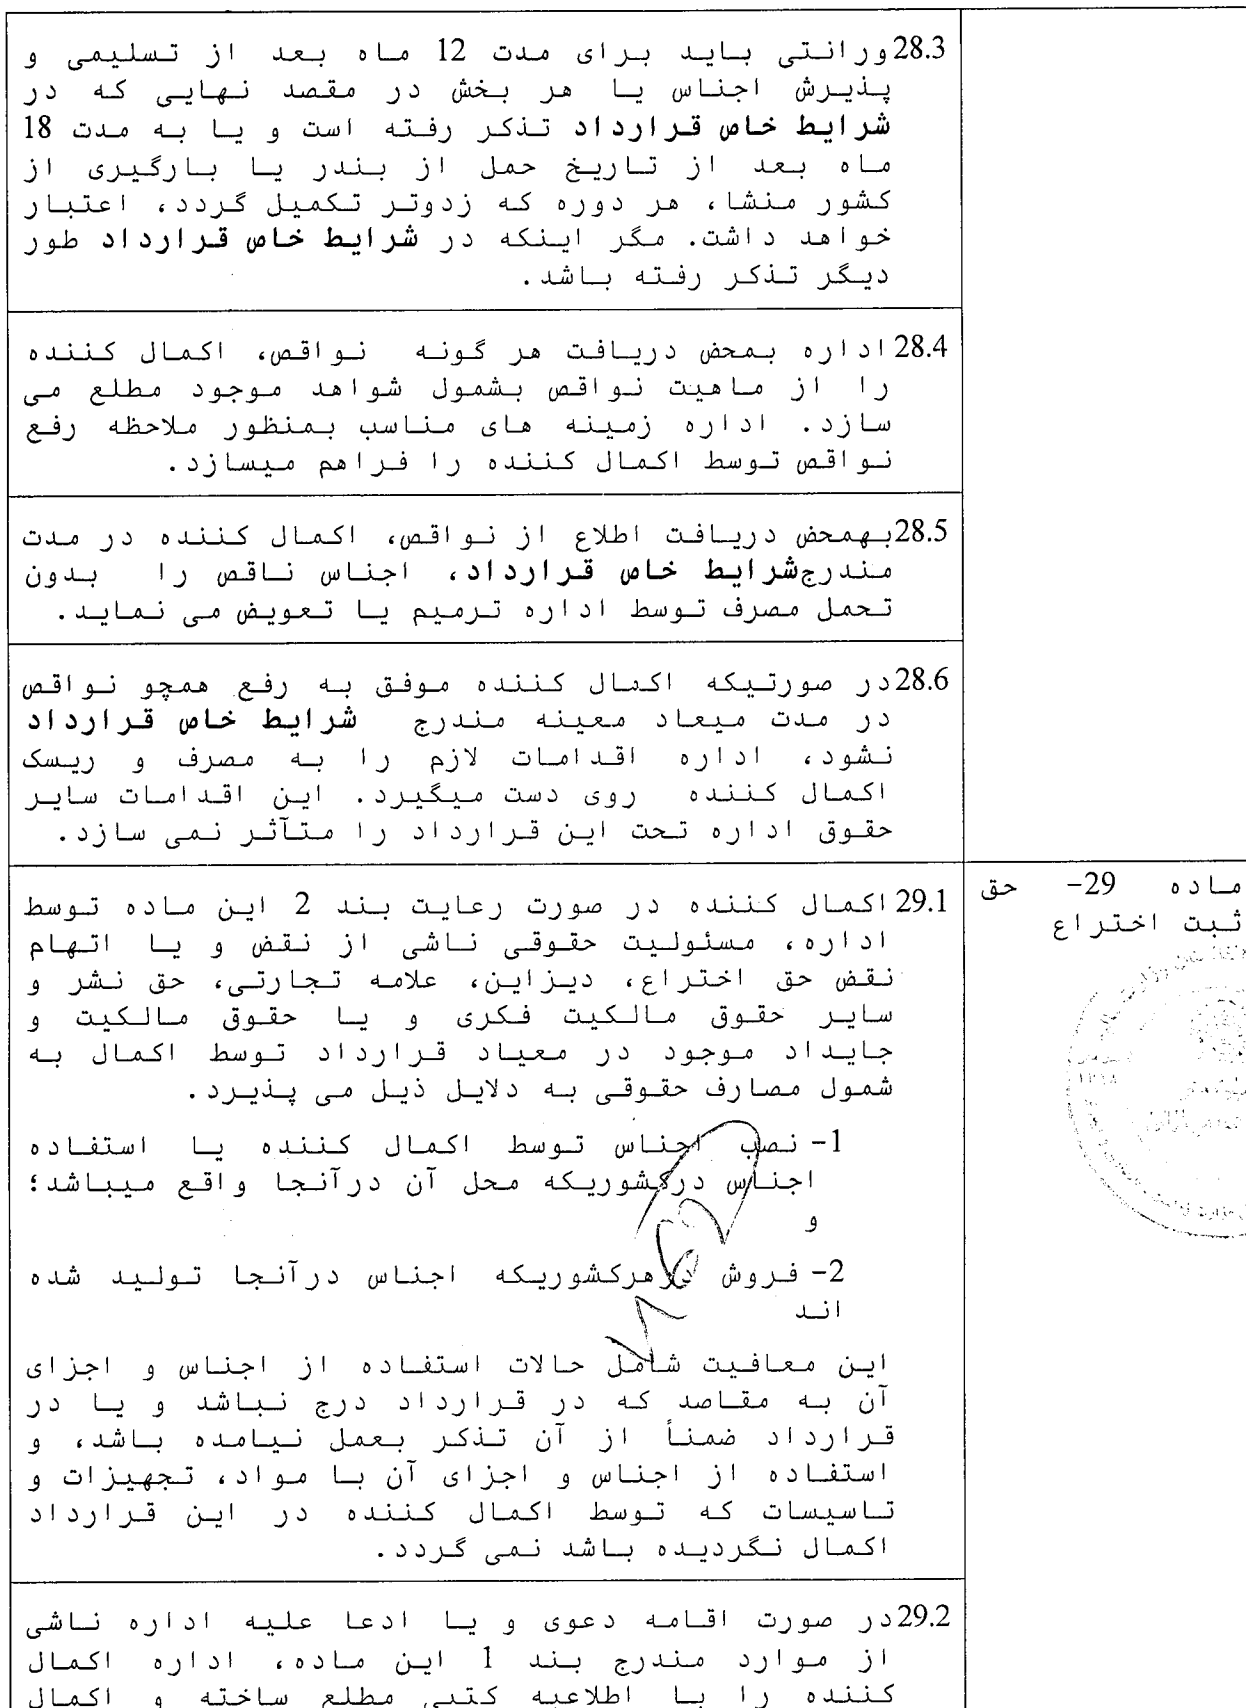 28.3 ورانتی باید برای مدت 12 ماه بعد از تسلیمی و
پذیرش اجناس یا هر بخش در مقصد نهایی که در
شرایط خاص قرارداد تذکر رفته است و یا به مدت 18
ماه بعد از تاریخ حمل از بندر یا بارگیری از
کشور منشا، هر دوره که زدوتر تکمیل گردد، اعتبار
خواهد داشت. مگر اینکه در شرایط خاص قرارداد طور
دیگر تذکر رفته باشد.
28.4 اداره بمحض دریافت هر گونه نواقص، اکمال کننده
را از ماهیت نواقص بشمول شواهد موجود مطلع می
سازد. اداره زمینه های مناسب بمنظور ملاحظه رفع
نواقص توسط اکمال کننده را فراهم میسازد.
28.5 بهمحض دریافت اطلاع از نواقص، اکمال کننده در مدت
مندرجشرایط خاص قرارداد، اجناس ناقص را بدون
تحمل مصرف توسط اداره ترمیم یا تعویض می نماید.
28.6 در صورتیکه اکمال کننده موفق به رفع همچو نواقص
در مدت میعاد معینه مندرج شرایط خاص قرارداد
نشود، اداره اقدامات لازم را به مصرف و ریسک
اکمال کننده روی دست میگیرد. این اقدامات سایر
حقوق اداره تحت این قرارداد را متآثر نمی سازد.
ماده 29- حق
ثبت اختراع
29.1 اکمال کننده در صورت رعایت بند 2 این ماده توسط
اداره، مسئولیت حقوقی ناشی از نقض و یا اتهام
نقض حق اختراع، دیزاین، علامه تجارتی، حق نشر و
سایر حقوق مالکیت فکری و یا حقوق مالکیت و
جایداد موجود در معیاد قرارداد توسط اکمال به
شمول مصارف حقوقی به دلایل ذیل می پذیرد.
1- نصب اجناس توسط اکمال کننده یا استفاده
اجناس درکشوریکه محل آن درآنجا واقع میباشد؛
و
2- فروش در هرکشوریکه اجناس درآنجا تولید شده
اند
این معافیت شامل حالات استفاده از اجناس و اجزای
آن به مقاصد که در قرارداد درج نباشد و یا در
قرارداد ضمناً از آن تذکر بعمل نیامده باشد، و
استفاده از اجناس و اجزای آن با مواد، تجهیزات و
تاسیسات که توسط اکمال کننده در این قرارداد
اکمال نگردیده باشد نمی گردد.
29.2 در صورت اقامه دعوی و یا ادعا علیه اداره ناشی
از موارد مندرج بند 1 این ماده، اداره اکمال
کننده را با اطلاعیه کتبی مطلع ساخته و اکمال